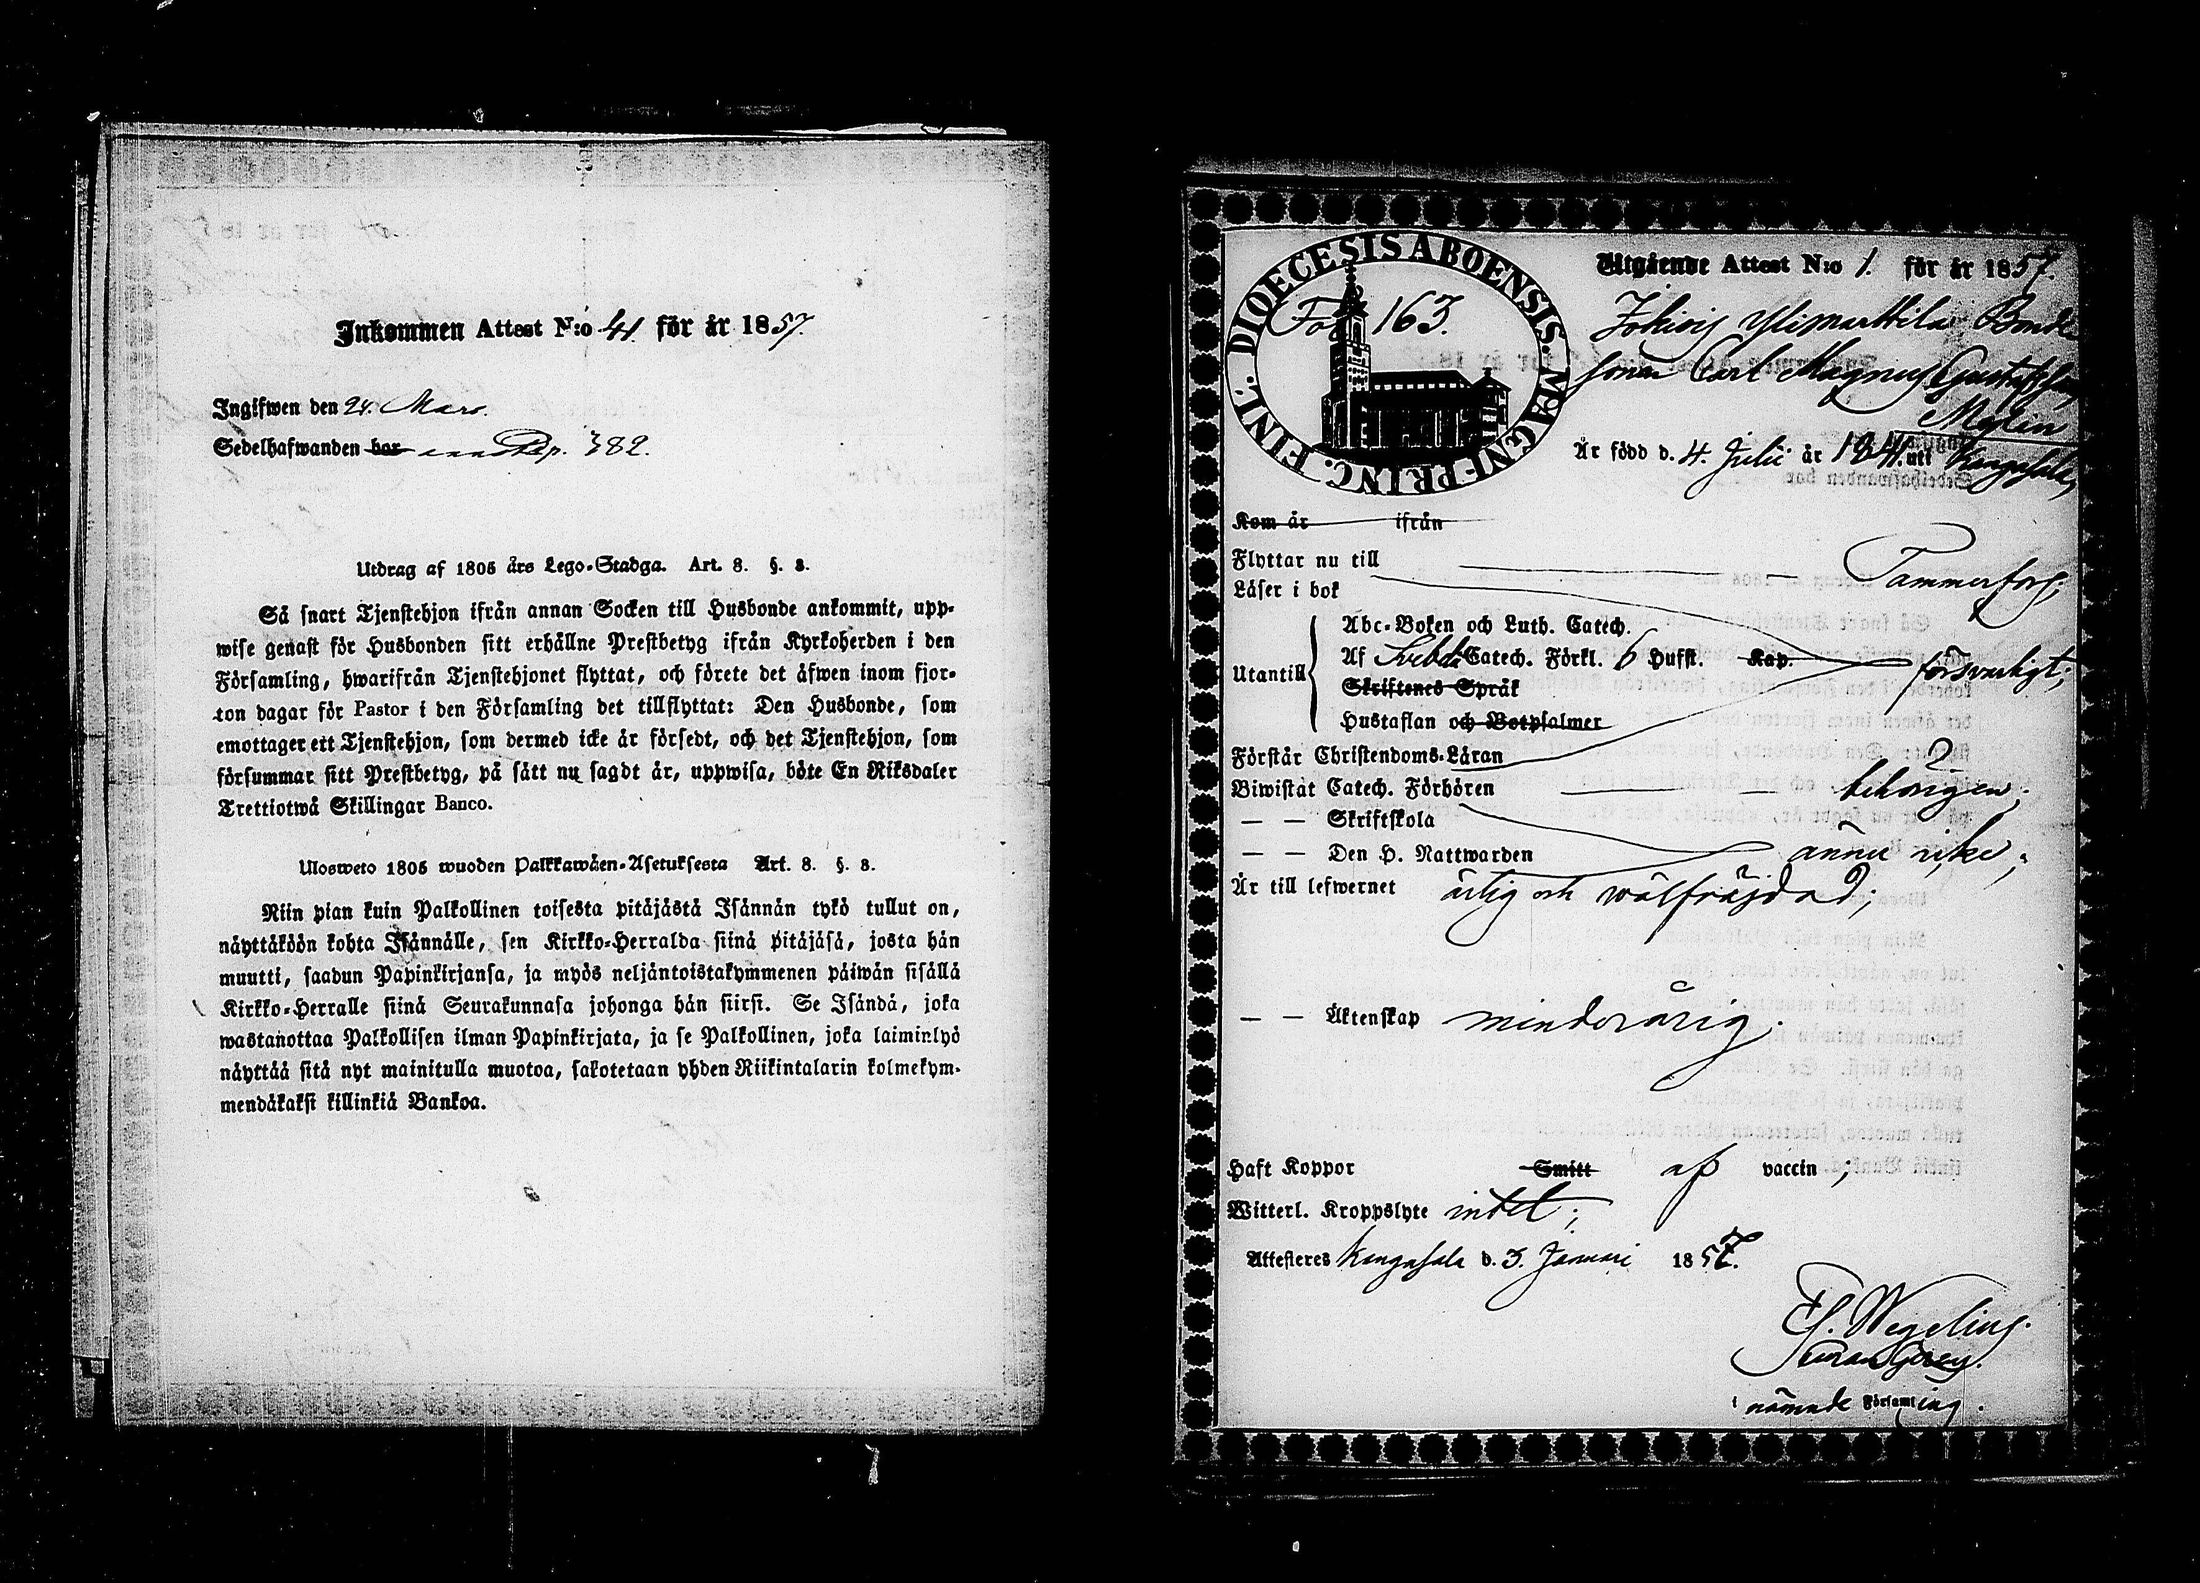 Inkommen Attest N:o 41 för år 1857.
Ingifwen den 24. Mars.
Sedelhafwanden har pp. 382.
Utdrag af 1805 års Lego-Stadga. Art. 8. §. 3.
Så snart Tjenstehjon ifrån annan Socken till Husbonde ankommit, upp-
wise genast för Husbonden sitt erhållne Prestbetyg ifrån Kyrkoherden i den
Församling, hwarifrån Tjenstehjonet flyttat, och förete det äfwen inom fjor-
ton dagar för Pastor i den Församling det tillflyttat: Den Husbonde, som
emottager ett Tjenstehjon, som dermed icke är försedt, och det Tjenstehjon, som
försummar sitt Prestbetyg, på sätt nu sagdt är, uppwisa, böte En Riksdaler
Trettiotwå Skillingar Banco.
Ulosweto 1805 wuoden Palkkawäen-Asetuksesta Art. 8. §. 3.
Niin pian kuin Palkollinen toisesta pitäjästä Isännän tykö tullut on,
näyttäköön kohta Isännälle, sen Kirkko-Herralda siinä pitäjäsä, josta hän
muutti, saadun Papinkirjansa, ja myös neljäntoistakymmenen päiwän sisällä
Kirkko-Herralle siinä Seurakunnasa johonga hän siirsi. Se Isändä, joka
wastanottaa Palkollisen ilman Papinkirjata, ja se Palkollinen, joka laiminlyö
näyttää sitä nyt mainitulla muotoa, sakotetaan yhden Riikintalarin kolmekym-
mendäkaksi killinkiä Bankoa.
DIOECESIS ABOENSIS. MAGNI PRINC. FINL.
Fol 163.
Utgående Attest N:o 1. för år 1857.
Jokiois Ylipparttila Bonde
sonen Carl Magnus Gustafsson
Mylin
Är född d. 4. Julii år 1841. uti Kangasala,
Kom år ifrån
Flyttar nu till Tammerfors;
Läser i bok
Utantill
Abc-Boken och Luth. Catech.
Af Svebeli Catech. Förkl. 6 Hufst. Kap. försvarligt;
Skriftenes Språk
Hustaflan och Botpsalmer
Förstår Christendoms-Läran
Biwistat Catech. Förhören behörigen;
— — Skriftskola
— — Den H. Nattwarden ännu icke;
Är till lefwernet ärlig och wälfräjdad;
— — Äktenskap minderårig.
Haft Koppor Smitt af vaccin;
Witterl. Kroppslyte intet;
Attesteres Kangasala d. 3. Januari 1857.
Wegelius.
i nämnde Församling.